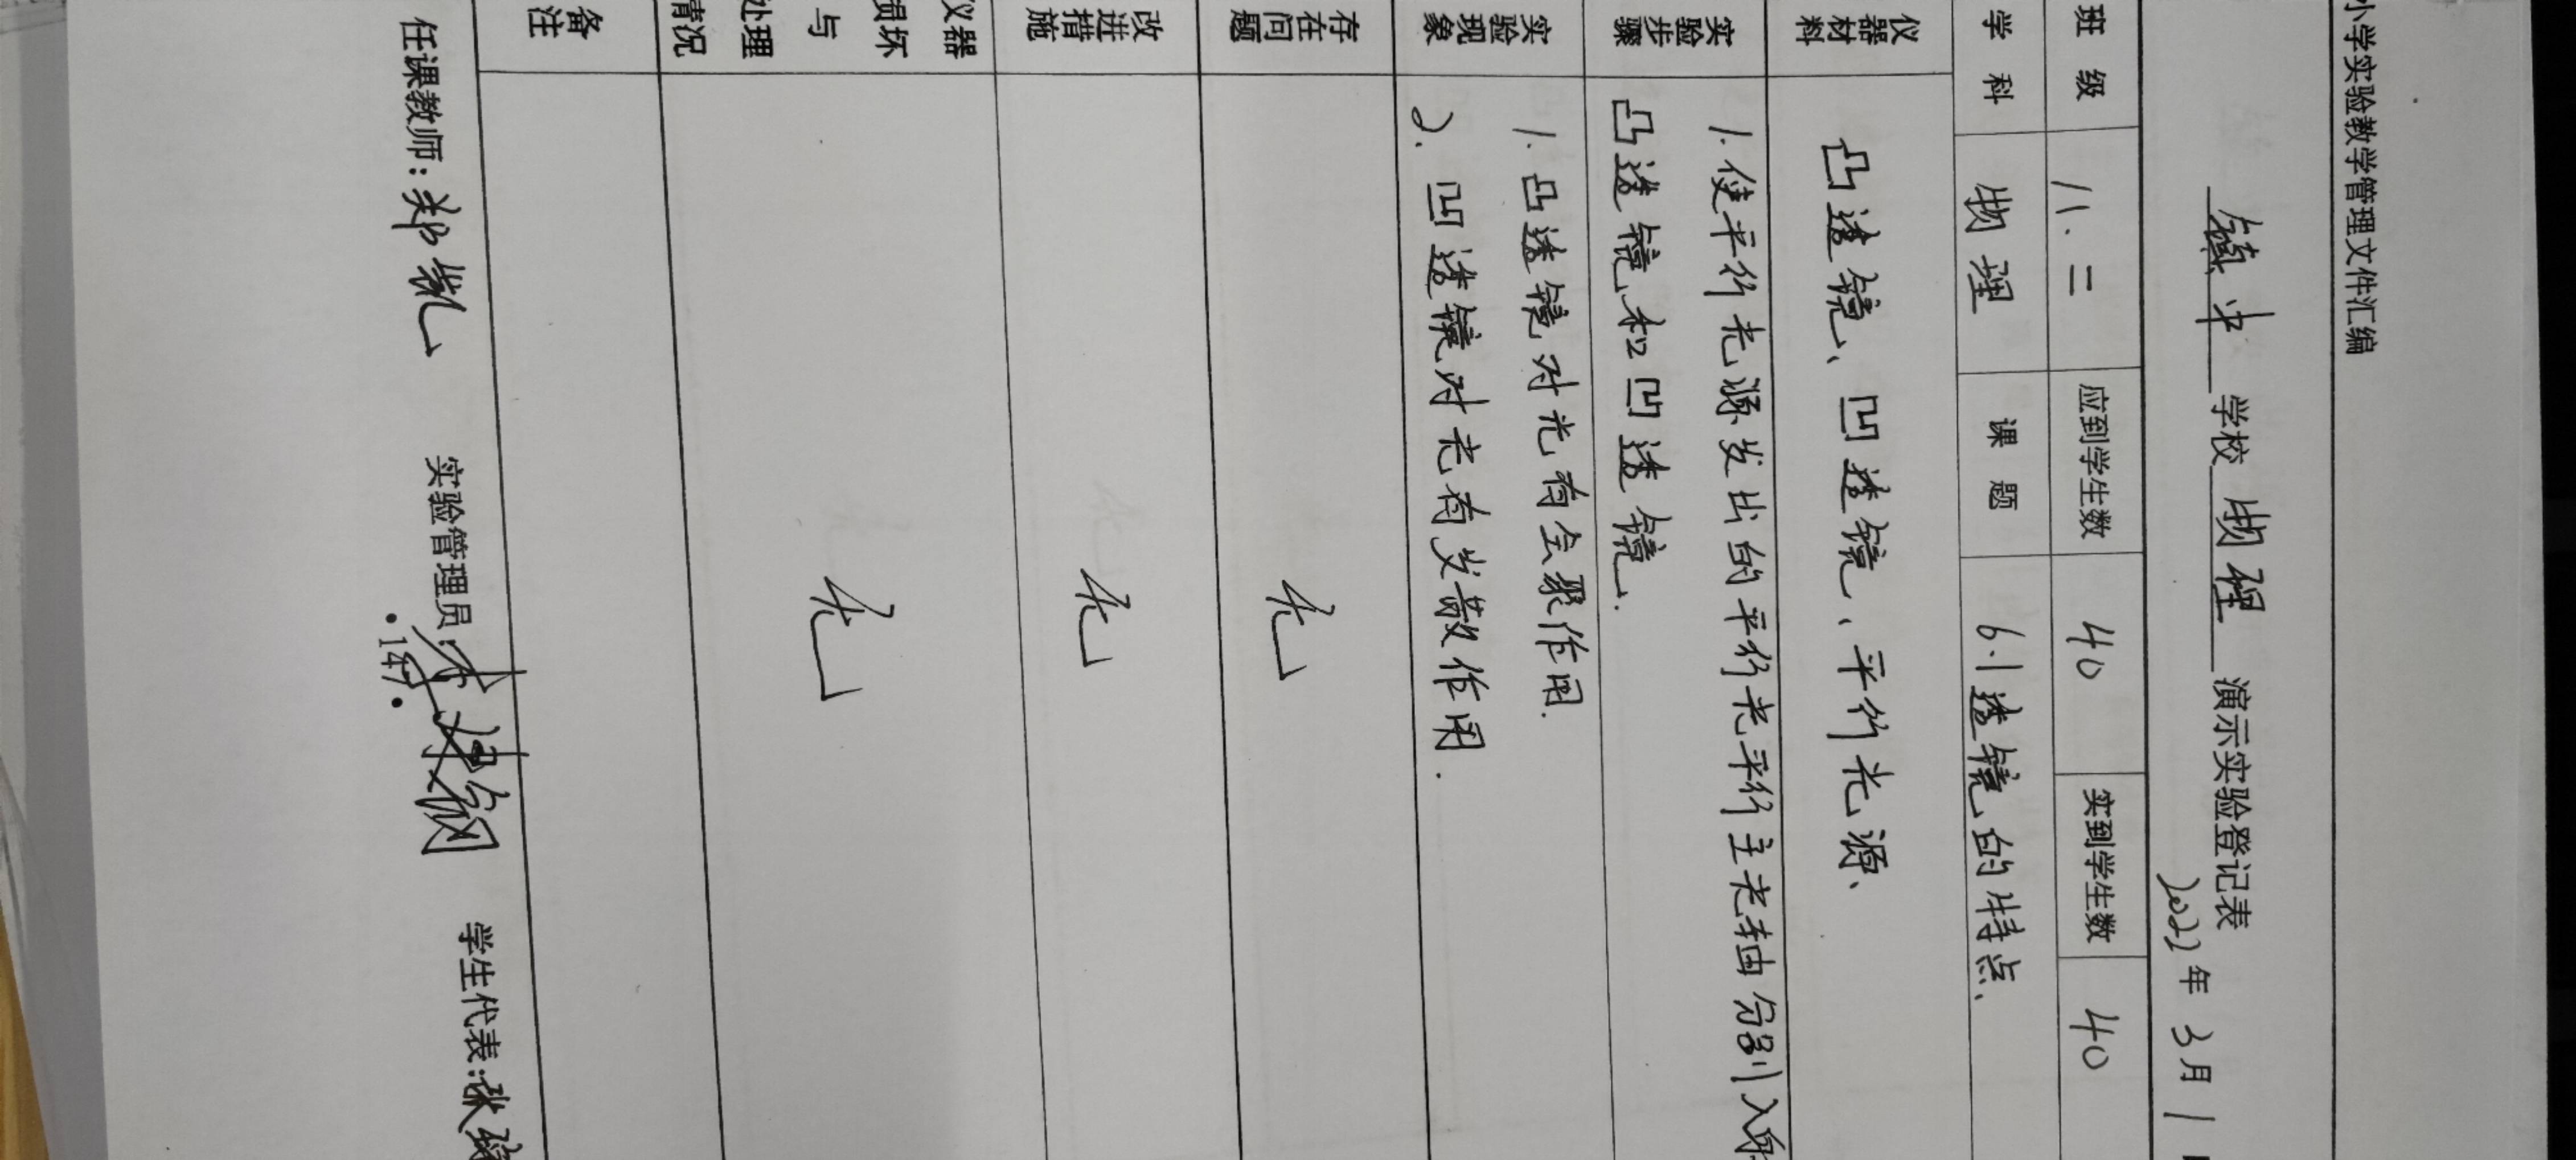 小学实验教学管理文件汇编
镇中 学校 物理 演示实验登记表
2022年 3月 1
班级 八.二 应到学生数 40 实到学生数 40
学科 物理 课题 6.1透镜的特点.
仪器材料 凸透镜、凹透镜、平行光源、
实验步骤 1.使平行光源发出的平行光平行主光轴分别入射
凸透镜和凹透镜.
实验现象 1.凸透镜对光有会聚作用.
2.凹透镜对光有发散作用.
存在问题 无
改进措施 无
仪器损坏与处理情况 无
备注
任课教师:郑凯 实验管理员: 学生代表:张
·147·